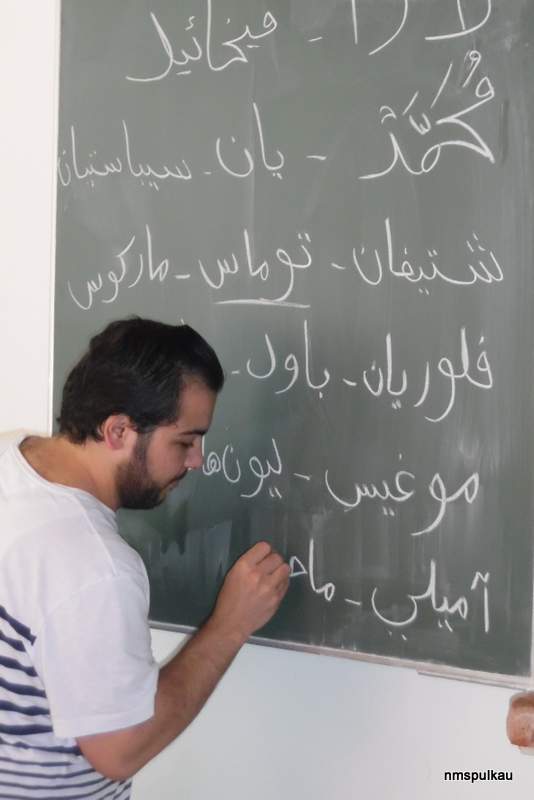 لارا - ميخائيل
مُحَمَّدْ - يان - سيباستيان
شتيفان - توماس - ماركوس
فلوريان - باول -
موغيس - ليون
آميلي - ما
nmspulkau